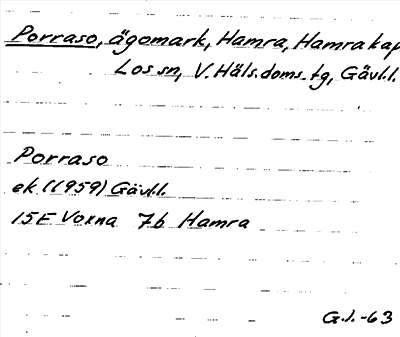 Porraso, ägomark, Hamra, Hamra kap
Los sn, V. Häls. doms. tg, Gävl.l.
Porraso
ek (1959) Gävl.l.
15E Voxna 7b Hamra
G.J.-63